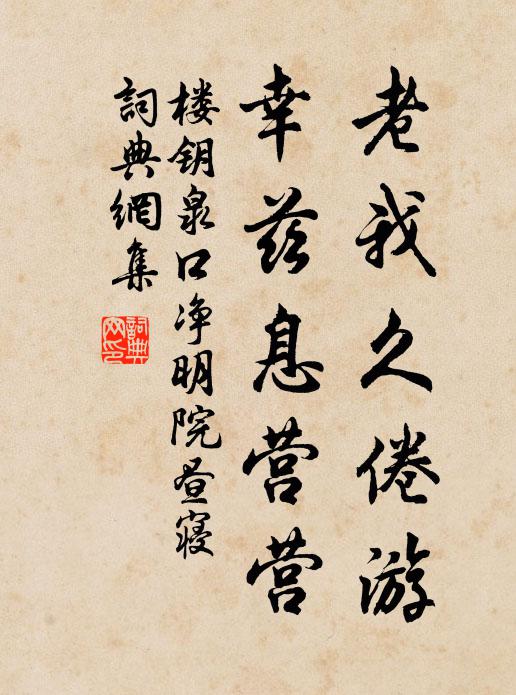 老我久倦游
幸兹息营营
楼钥泉口净明院昼寝
詞典網集
詞典
网印